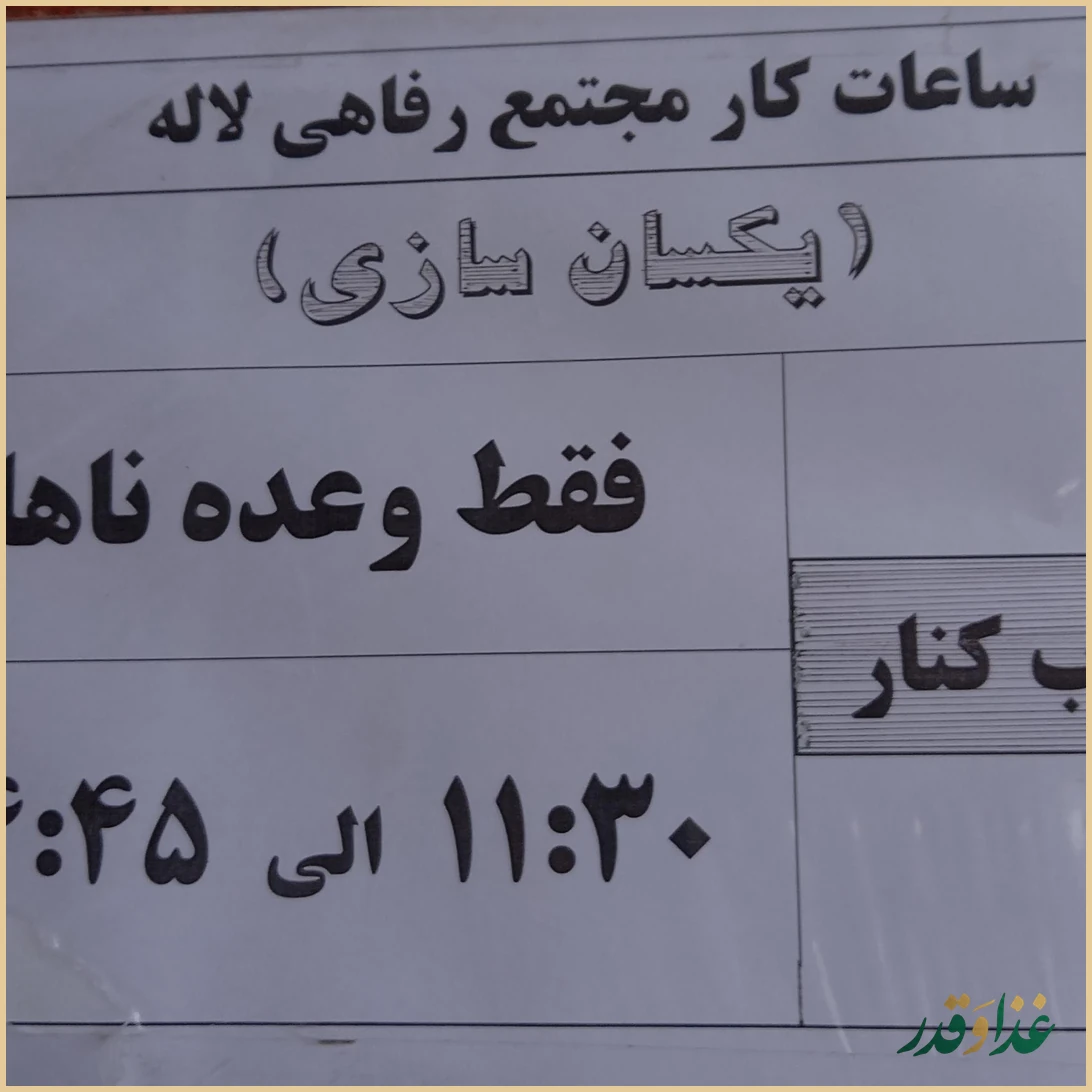 ساعات کار مجتمع رفاهی لاله
(یکسان سازی)
فقط وعده
کنار
۱۱:۳۰ الی
غذا و قدر